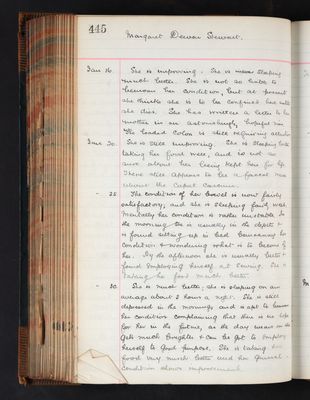 445
Margaret Dewar Stewart.
Jan 16. She is improving. She is now sleeping
much better. She is not so liable to
bemoan her condition, but at present
she thinks she is to be confined here until
she dies. She has written a letter to her
mother in an astonishingly hopeful vein
The loaded Colon is still requiring attention
Jan 20. She is still improving. She is sleeping better
taking her food well, and is not so
sure about her being kept here for life
There still appears to be a faecal mass
about the Caput Caecum.
" 25 The condition of her bowel is now fairly
satisfactory, and she is sleeping fairly well
Mentally her condition is rather unstable. In
the morning she is usually in the depths &
is found sitting up in bed bemoaning her
condition & wondering what is to become of
her. By the afternoon she is usually better &
found employing herself at sewing. She is
taking her food much better.
" 30. She is much better, she is sleeping on an
average about 5 hours a night. She is still
depressed in the mornings and is apt to bemoan
her condition complaining that there is no hope
for her in the future, as the day wears on she
gets much brighter & can be got to employ
herself to good purpose. She is taking her
food very much better and her general
condition shows improvement.